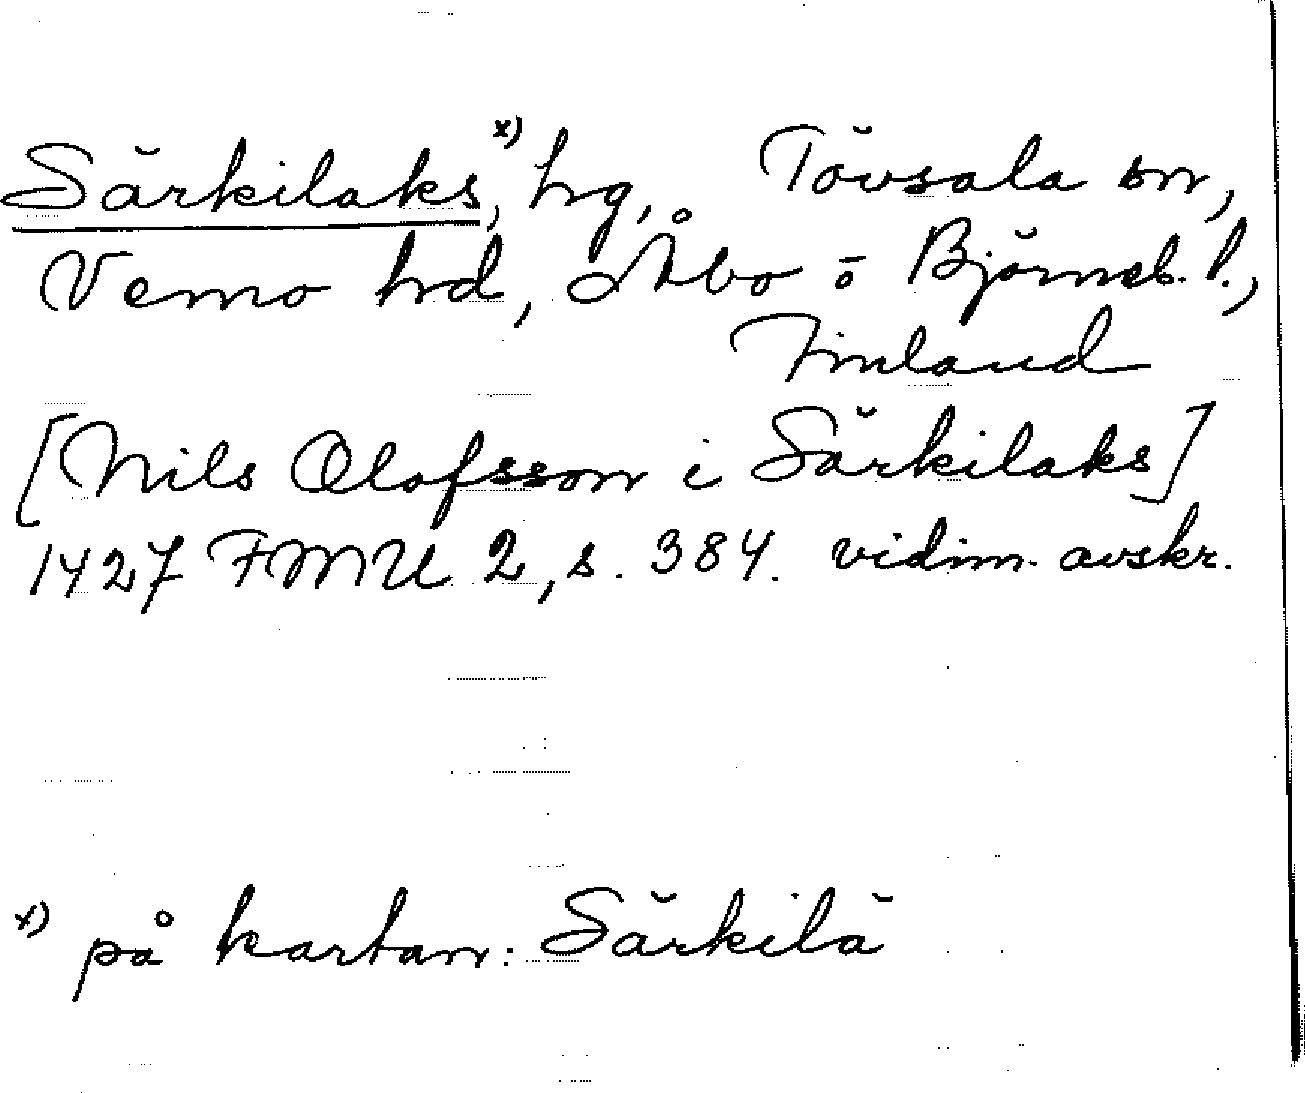 Särkilaks,ˣ⁾ hg, Tövsala sn,
Vemo hd, Åbo ö Björneb. l.,
Finland
[Nils Olofsson i Särkilaks]
1427 FMU 2, s. 384. vidim. avskr.
x) på kartan: Särkilä